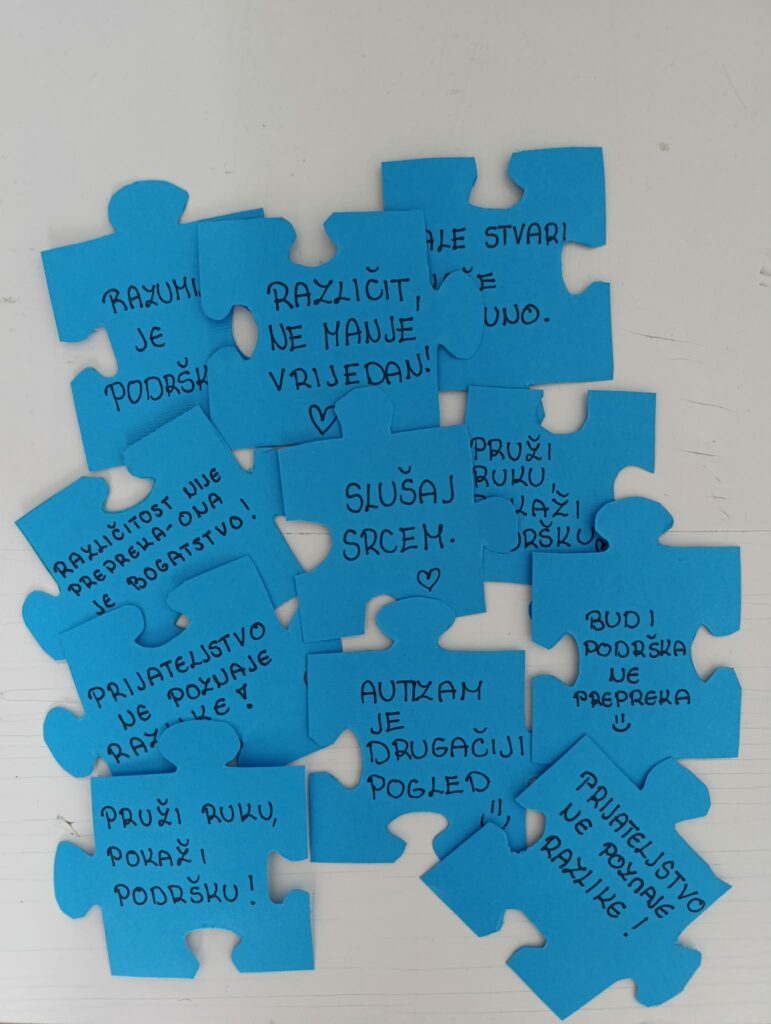 RAZUMI
JE
PODRŠK
RAZLIČIT,
NE MANJE
VRIJEDAN!
ALE STVARI
UNO.
RAZLIČITOST NIJE
PREPREKA-ONA
JE BOGATSTVO!
SLUŠAJ
SRCEM.
PRUŽI
RUKU,
KAŽI
DRŠKU
PRIJATELJSTVO
NE POZNAJE
RAZLIKE!
BUDI
PODRŠKA
NE
PREPREKA
AUTIZAM
JE
DRUGAČIJI
POGLED
PRUŽI RUKU,
POKAŽI
PODRŠKU!
PRIJATELJSTVO
NE POZNAJE
RAZLIKE!